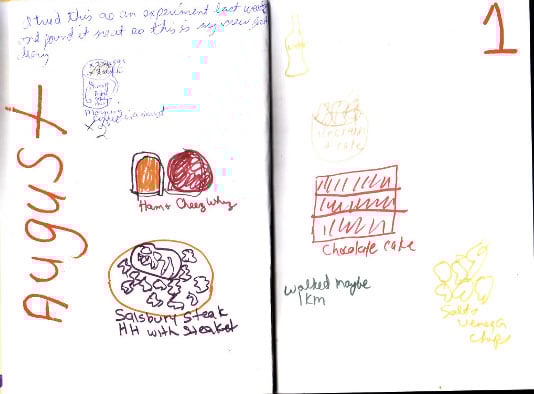 I tried this as an experiment last week
and found it neat so this is my new
August
x 2
Ham + Cheez Whiz
Salsbury Steak
HH with
1
Chocolate cake
walked maybe
1 KM
Salt +
Venegar
Chips